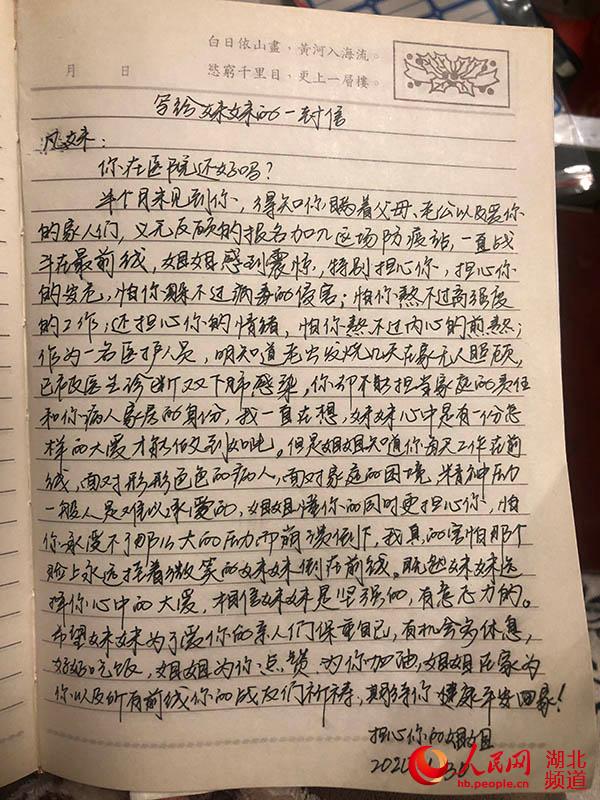 人民网 湖北频道
people.cn
白日依山盡，黃河入海流。
月 日
慾窮千里目，更上一層樓。
写给妹妹的一封信
风妹：
你在医院还好吗？
半个月未见到你，得知你瞒着父母、老公以及爱你
的家人们，义无反顾的报名加入这场防疫站，一直战
斗在最前线，姐姐感到震惊，特别担心你，担心你
的安危，怕你熬不过病毒的侵害；怕你熬不过高强度
的工作；还担心你的情绪，怕你熬不过内心的煎熬；
作为一名医护人员，明知道老公发烧几天在家无人照顾，
已被医生诊断双下肺感染，你却不能担当家庭的责任
和你病人家属的身份，我一直在想，妹妹心中是有一份怎
样的大爱才能做到如此。但是姐姐知道你每天工作在前
线，面对形形色色的病人，面对家庭的困境，精神压力
一般人是难以承受的，姐姐懂你的同时更担心你，怕
你承受不了那么大的压力而崩溃倒下，我真的害怕那个
脸上永远挂着微笑的妹妹倒在前线。既然妹妹选
择你心中的大爱，相信妹妹是坚强的，有意志力的。
希望妹妹为了爱你的亲人们保重自己，有机会多休息，
好好吃饭，姐姐为你点赞为你加油，姐姐在家为
你以及所有前线你的战友们祈祷，期待你健康平安回家！
担心你的姐姐
人民网 湖北频道
hb.people.cn